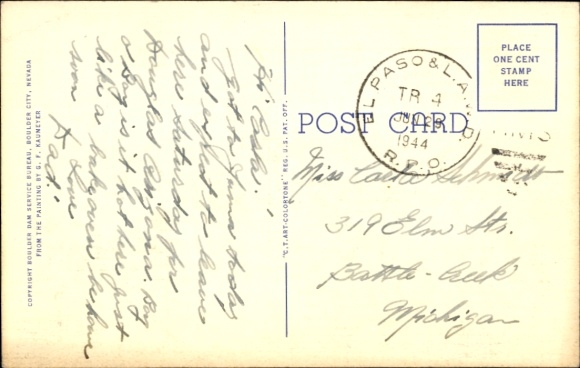 Hi! Casta!
Got to Yuma today
and expect to leave
here Saturday for
Douglas Arizona. Boy
o Boy is it hot here just
like a bake oven be home
soon Love
Dad!
COPYRIGHT BOULDER DAM SERVICE BUREAU, BOULDER CITY, NEVADA
FROM THE PAINTING BY G. F. KAUMEYER
"C.T. ART-COLORTONE" REG. U.S. PAT. OFF.
POST CARD
PLACE
ONE CENT
STAMP
HERE
EL PASO & L.A.
TR 4
JUN 28
1944
R.P.O.
Miss Schmidt
319 Elm Str.
Battle-Creek
Michigan